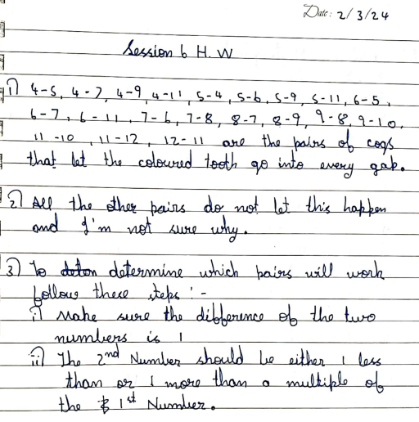 Date: 2/3/24
Session 6 H.W
1) 4-5, 4-7, 4-9, 4-11, 5-4, 5-6, 5-9, 5-11, 6-5,
6-7, 6-11, 7-6, 7-8, 8-7, 8-9, 9-8, 9-10,
11-10, 11-12, 12-11 are the pairs of cogs
that let the coloured tooth go into every gap.
2) All the other pairs do not let this happen
and I'm not sure why.
3) To determine which pairs will work
follow these steps :-
i) Make sure the difference of the two
numbers is 1
ii) The 2nd Number should be either 1 less
than or 1 more than a multiple of
the 1st Number.